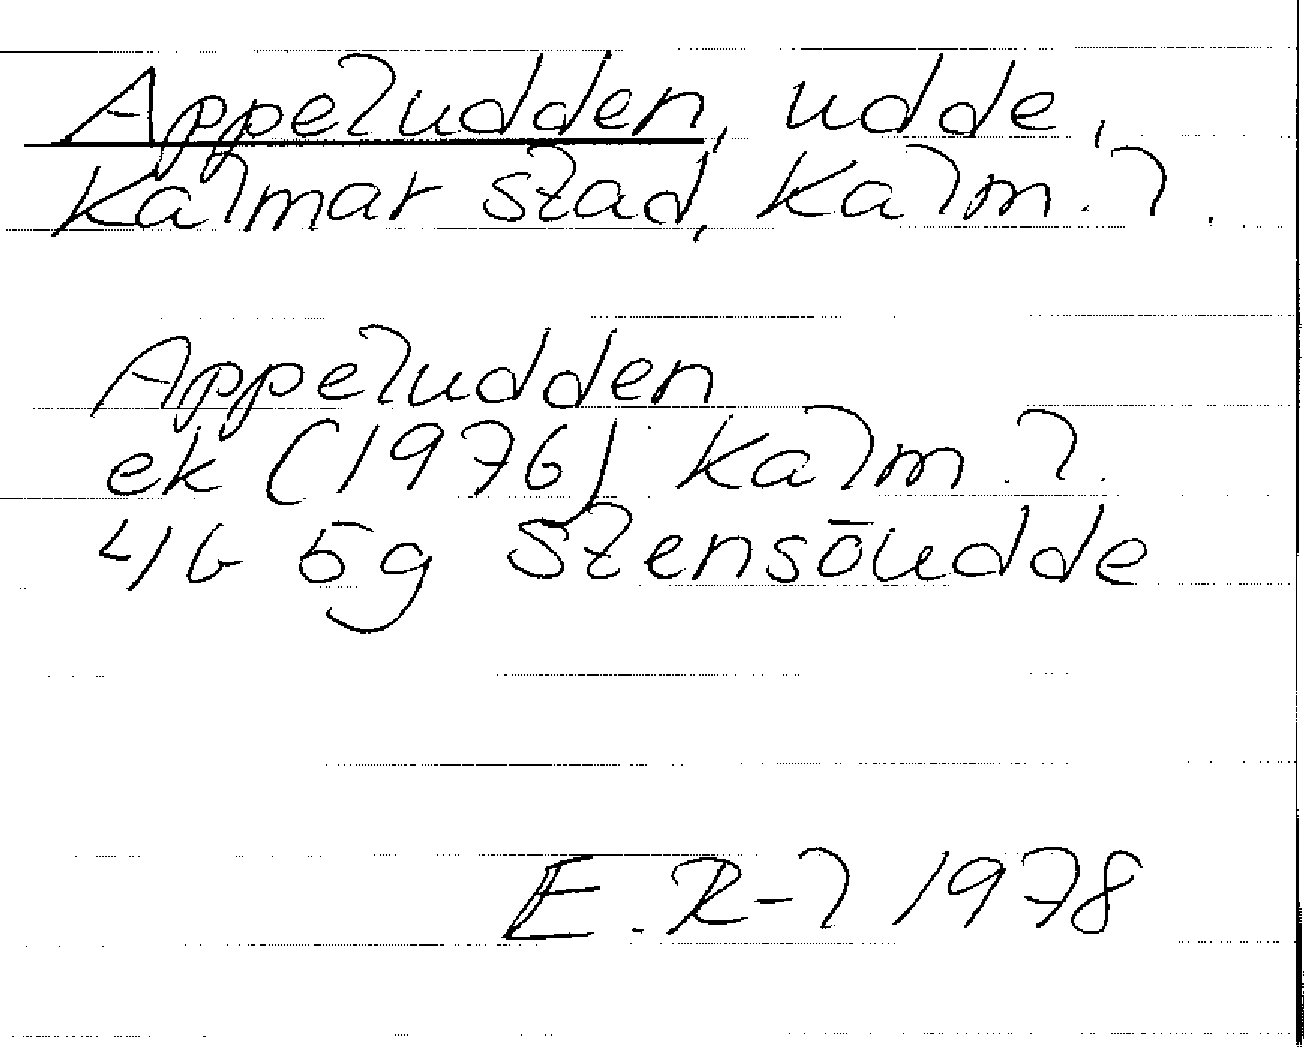 Appeludden, udde,
Kalmar stad, Kalm. l.
Appeludden
ek (1976) Kalm. l.
4G 5g Stensöudde
E. R-l 1978